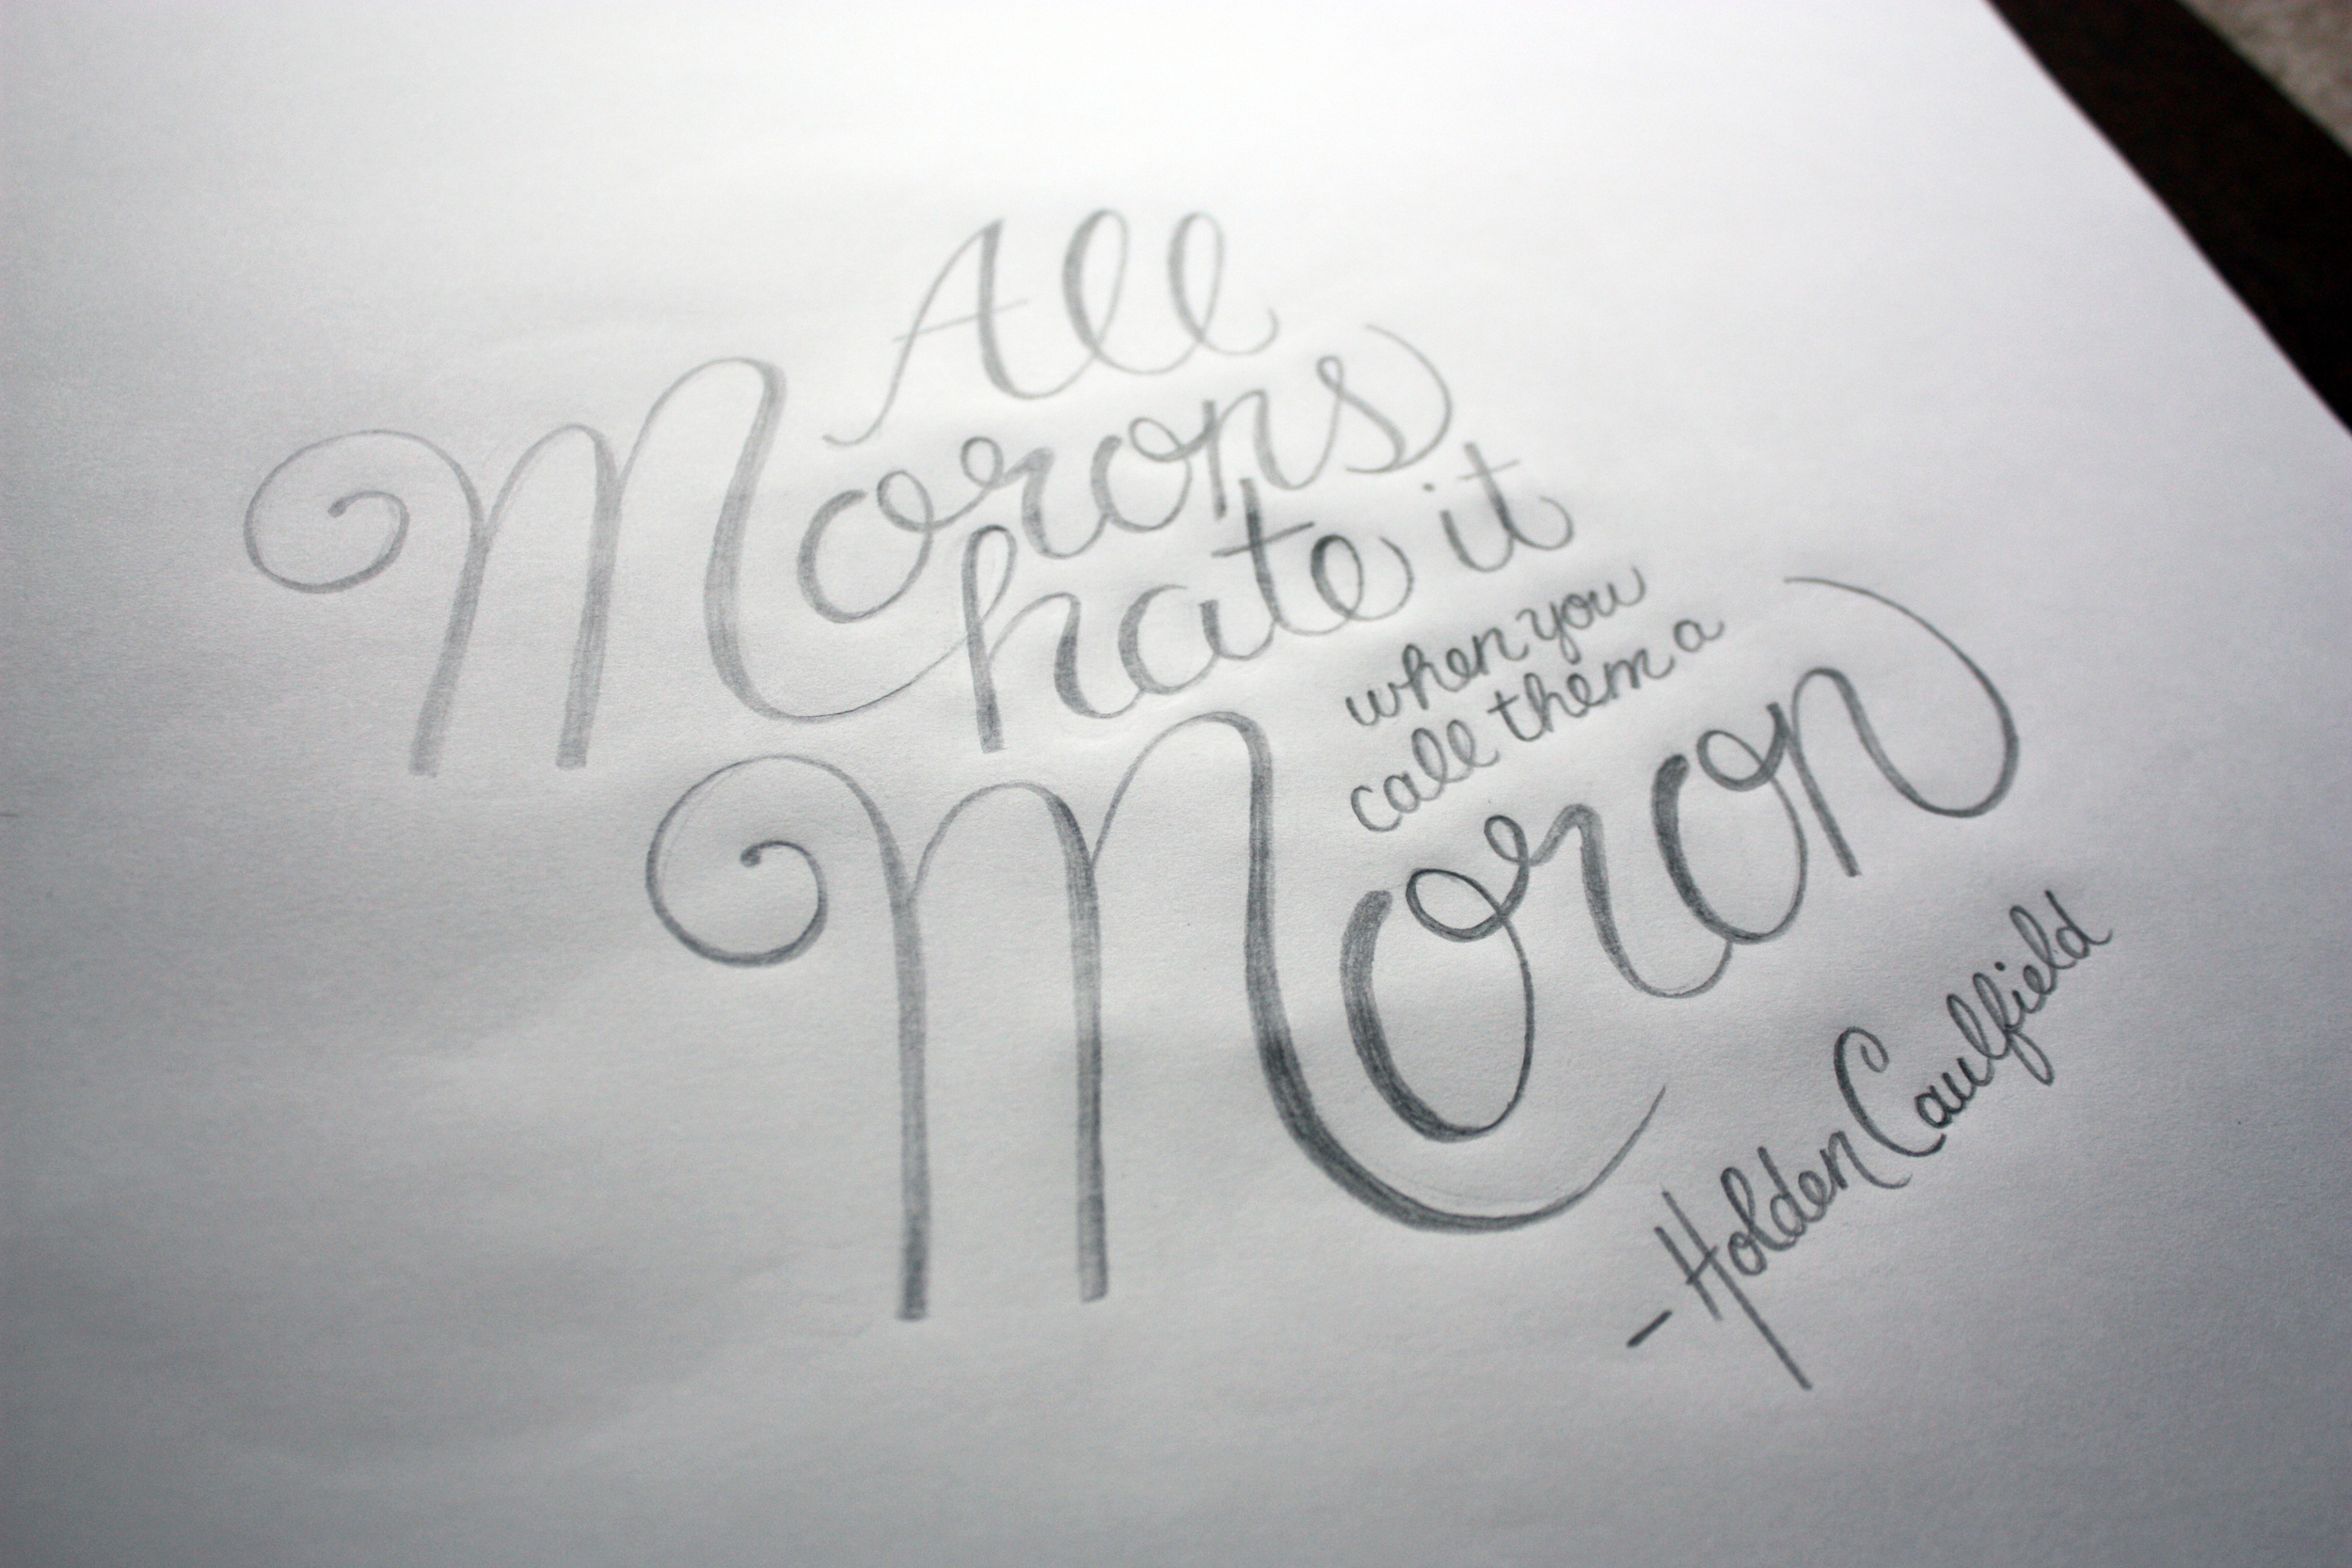 All
Morons
hate it
when you
call them a
Moron
- Holden Caulfield